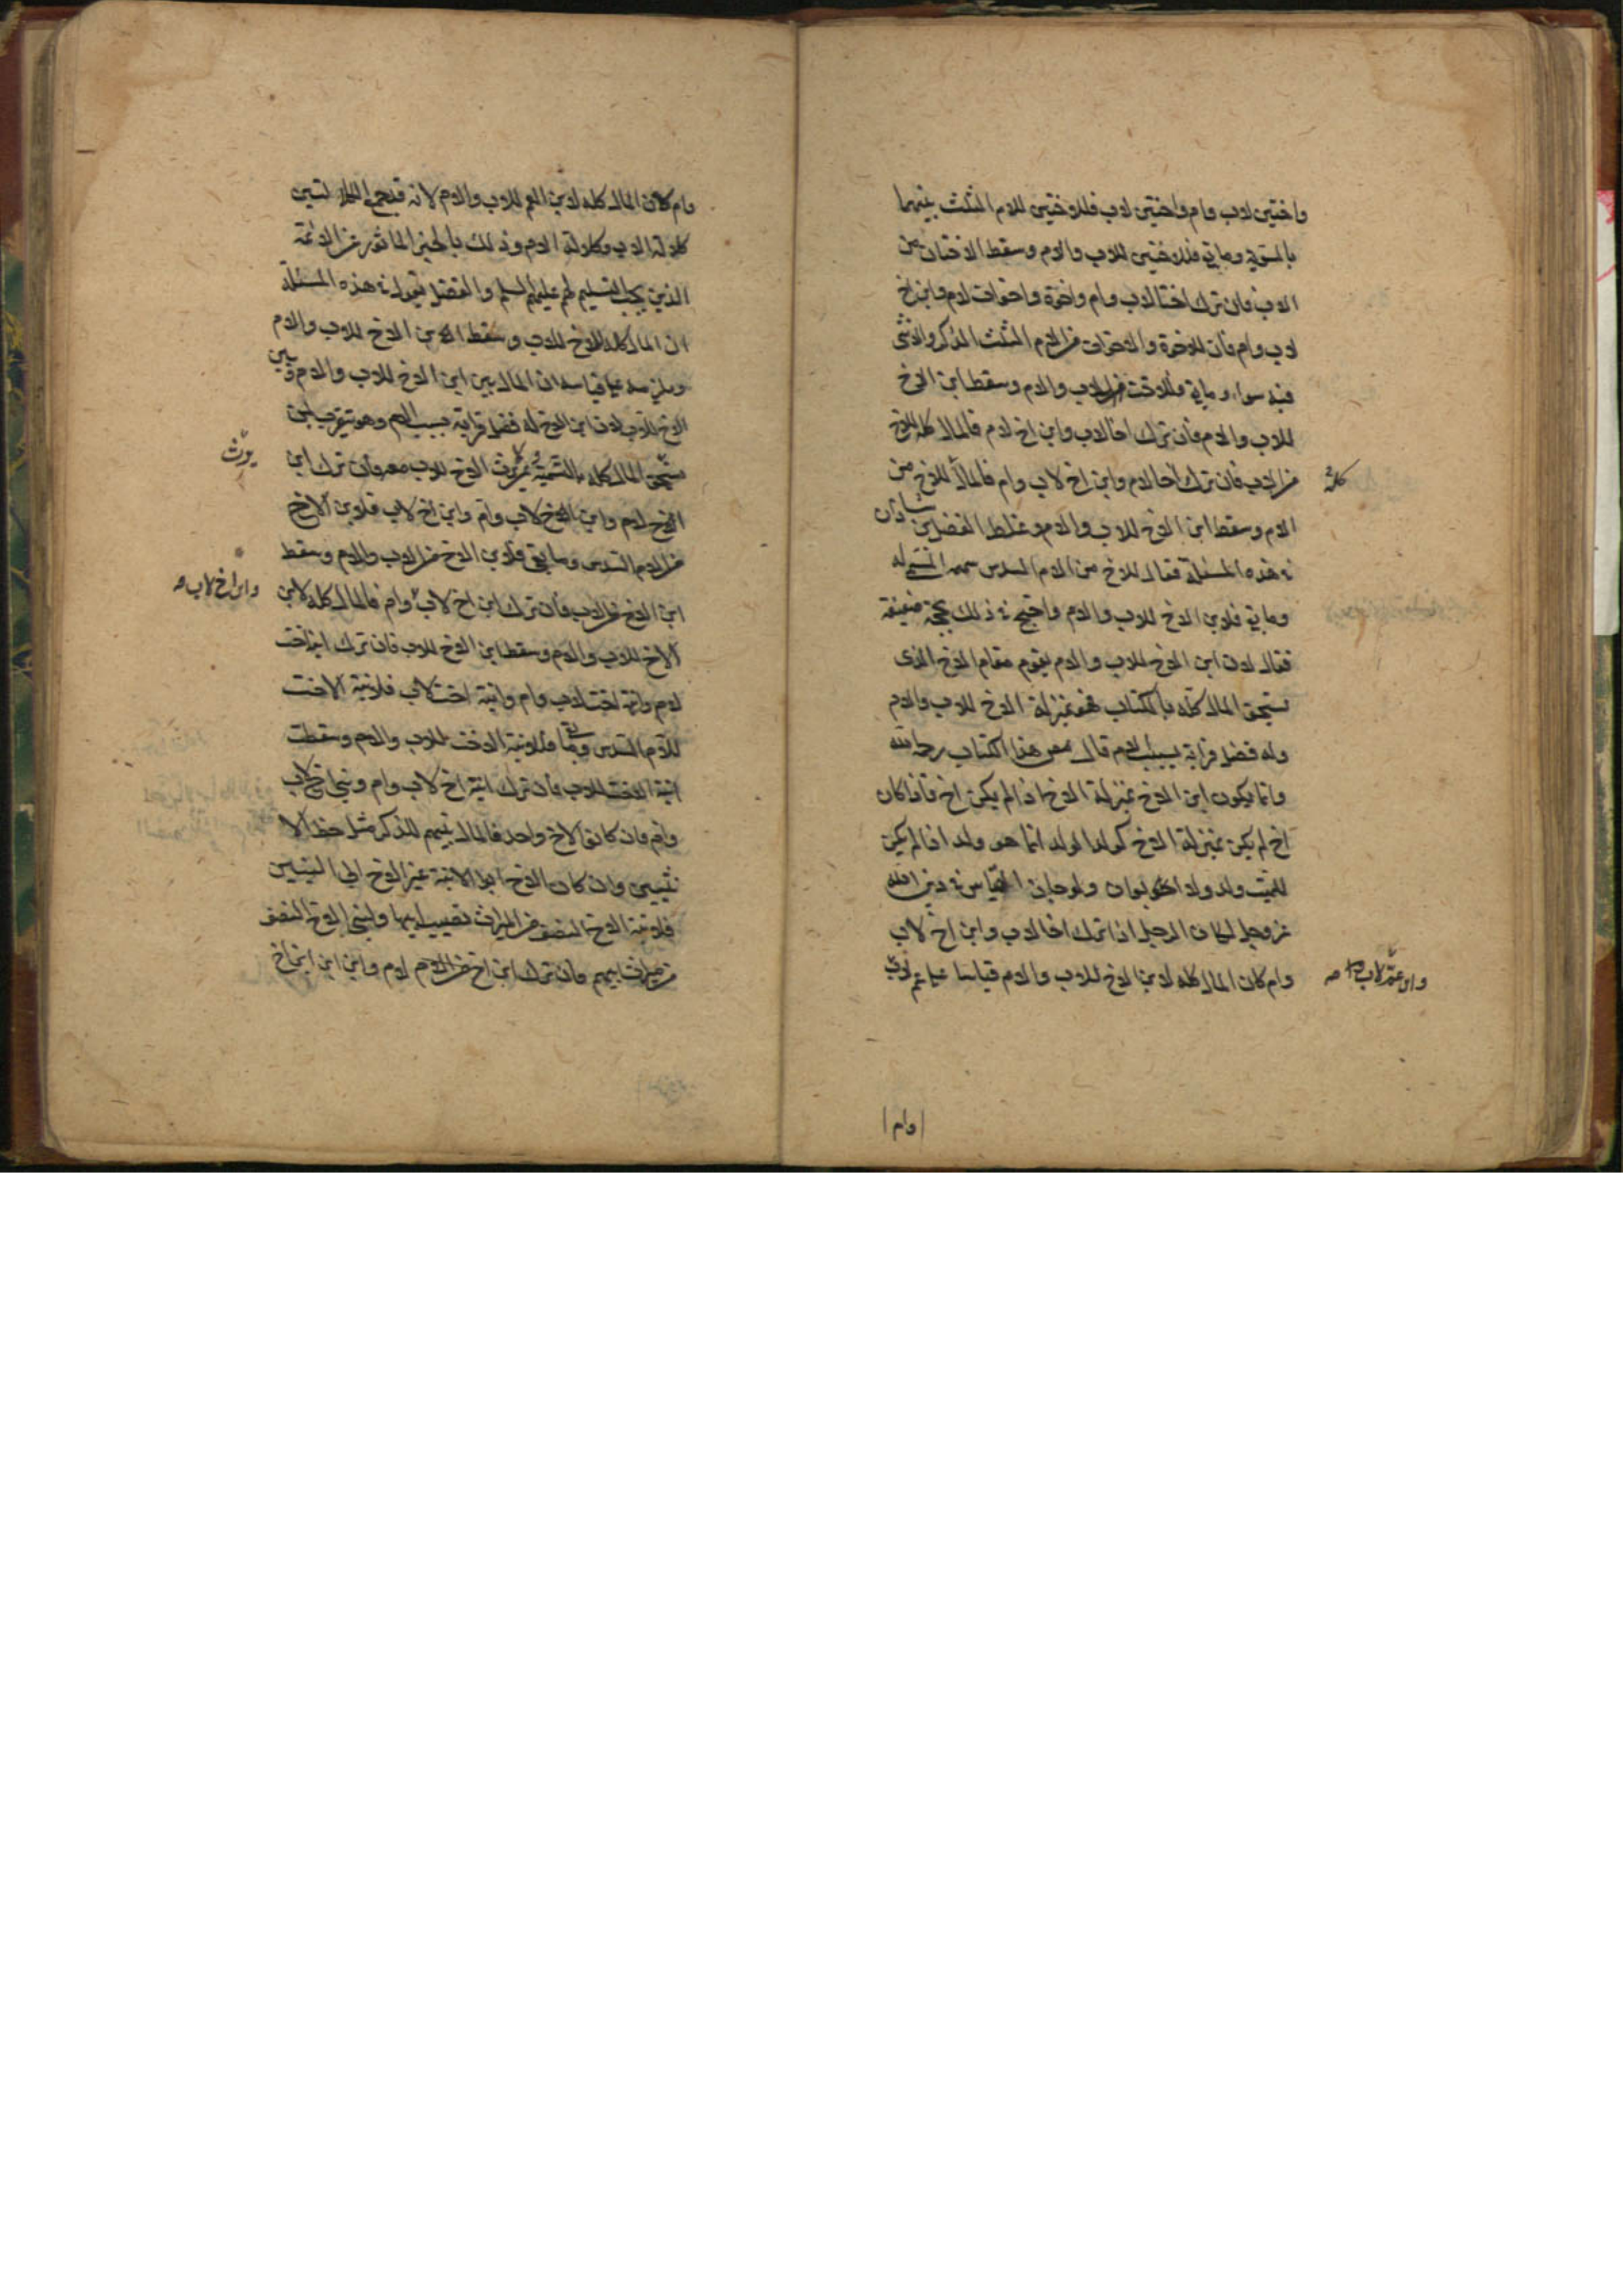 واختين لاب وام واختين لاب فللاختين للام الثلث بينهما
بالسوية وما بقي فللاختين للاب والام وسقط الاختان من
الاب فان ترك اختا لاب وام واخوة واخوات لام وابن اخ
لاب وام فان للاخوة والاخوات من الام الثلث الذكر والانثى
فيه سواء وما بقي فللاخت من الاب والام وسقط ابن الاخ
للاب والام فان ترك اخا لاب وابن اخ لام فالمال كله للاخ
من الاب فان ترك اخا لام وابن اخ لاب وام فالمال للاخ من
كله
الام وسقط ابن الاخ للاب والام وغلط الفضل بن شاذان
في هذه المسئلة فقال للاخ من الام السدس سهمه المسمى له
وما بقي فلابن الاخ للاب والام واحتج في ذلك بحجة ضعيفة
فقال لان ابن الاخ للاب والام يقوم مقام الاخ الذي
يستحق المال كله بالكتاب فهو بمنزلة الاخ للاب والام
وله فضل قرابة بسبب الام قال مصنف هذا الكتاب رحمه الله
وانما يكون ابن الاخ بمنزلة الاخ اذا لم يكن اخ فاذا كان
اخ لم يكن بمنزلة الاخ كولد الولد انما هو ولد اذا لم يكن
للميت ولد ولا ابوان ولو جاز القياس في دين الله
عز وجل لكان الرجل اذا ترك اخا لاب وابن اخ لاب
وام كان المال كله لابن الاخ للاب والام قياسا على عم لاب
وابن عم لاب وام
وام
وام كان المال كله لابن العم للاب والام لانه قد جمع الكلالتين
كلالة الاب وكلالة الام وذلك بالخبر الماثور عن الائمة
الذين يجب التسليم لهم عليهم السلم والفضل يقول في هذه المسئلة
ان المال كله للاخ للاب وسقط ابن الاخ للاب والام
ويلزمه على قياسه ان المال بين ابن الاخ للاب والام وبين
الاخ للاب لان ابن الاخ له فضل قرابة بسبب الام وهو يتقرب بمن
يستحق المال كله بالتسمية وبمن يرث الاخ للاب معه فان ترك ابن
يورث
الاخ لام وابن الاخ لاب وام وابن اخ لاب فلابن الاخ
من الام السدس وما بقي فلابن الاخ من الاب والام وسقط
ابن الاخ من الاب فان ترك ابن اخ لاب وام فالمال كله لابن
وابن اخ لاب
الاخ للاب والام وسقط ابن الاخ للاب فان ترك ابنة اخت
لام وابنة اخت لاب وام وابنة اخت لاب فلابنة الاخت
للام السدس وما بقي فلابنة الاخت للاب والام وسقطت
ابنة الاخت للاب فان ترك ابنة اخ لاب وام وبني اخ لاب
وام فان كانوا لاخ واحد فالمال بينهم للذكر مثل حظ الا
نثيين وان كان الاخ ابو الابنة غير الاخ ابي البنين
فلابنة الاخ النصف من الميراث نصيب ابيها ولبني الاخ النصف
من ميراث ابيهم فان ترك ابن اخ لام وابن ابن ابن اخ